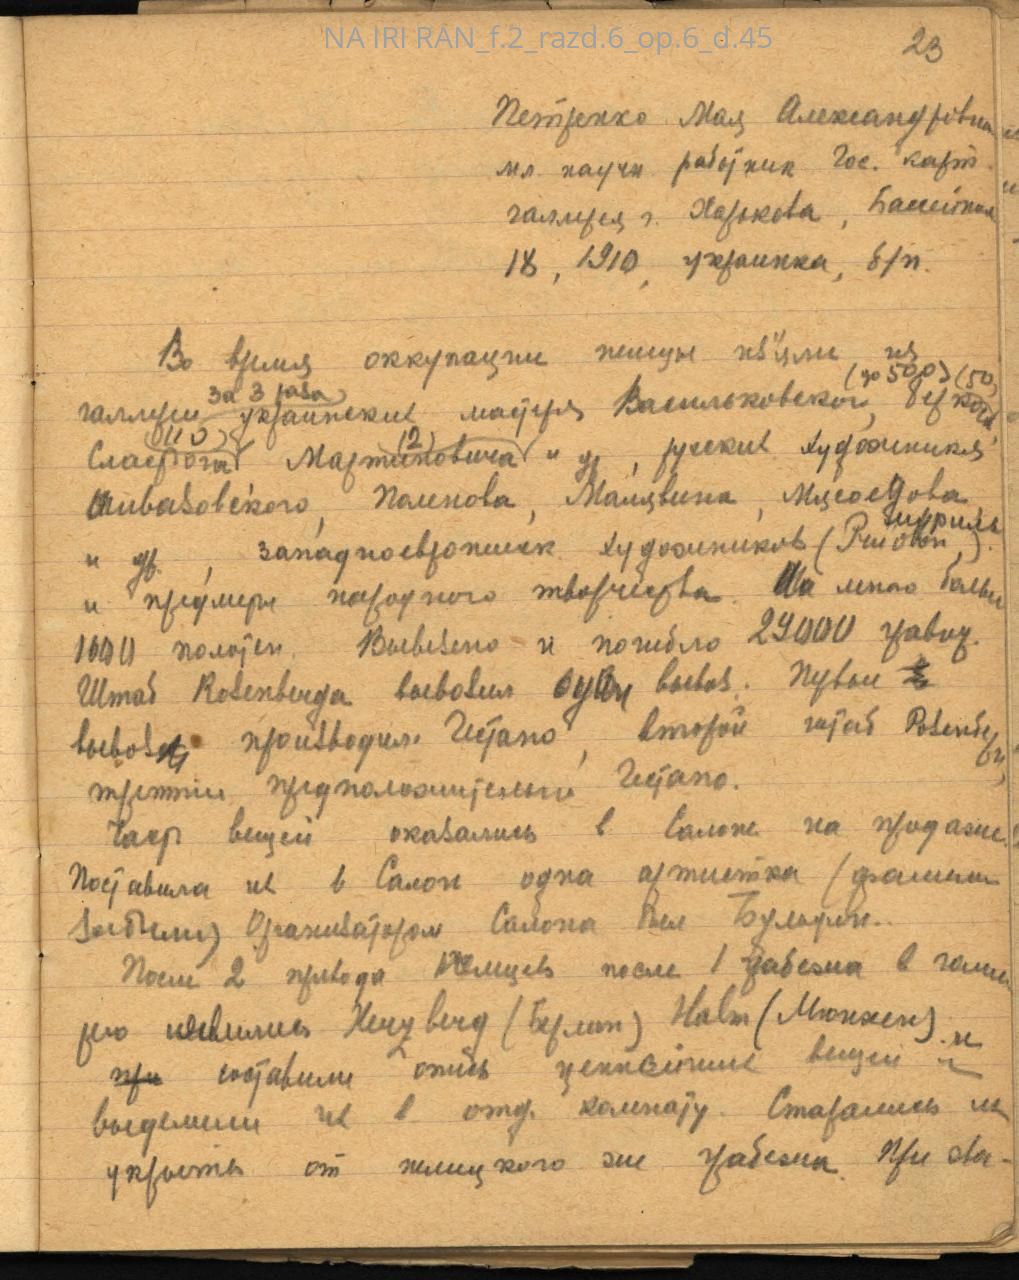 NA IRI RAN_f.2_razd.6_op.6_d.45
23
Петренко Мая Александровна
мл. научн работник Гос. карт.
галлереи г. Харькова, Бассейная
18, 1910, украинка, б/п.
Во время оккупации немцы изъяли из
(до 500) (50)
за 3 раза
галлереи украинских мастеров Васильковского, Беркоса,
(110) (2)
Сластёна Мартиновича и др, русских художников
Айвазовского, Поленова, Малявина, Мясоедова
и др., западноевропейск. художников (
и предметы народного творчества. На много больше
1000 полотен. Вывезено и погибло 24000 гравюр.
Штаб Rosenberga вывозил вывоз. Первый
вывоз производил Гестапо, второй штаб Rosenberga,
третий предположительно Гестапо.
Часть вещей оказались в Салоне на продаже.
Поставила их в Салон одна артистка (фамилии
забыли) Организатором Салона был
После 2 прихода немцев после 1 грабежа в галле-
рею явились Herzberg (Берлин) Halm (Мюнхен) и
при составили опись ценнейших вещей и
выделили их в отд. комнату. Старались их
укрыть от немецкого же грабежа. При эва-